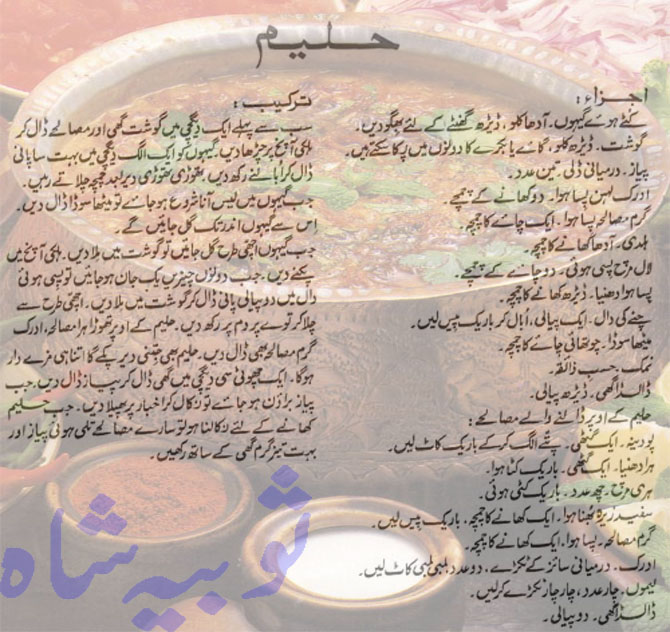 حلیم
اجزاء:
کٹے ہوئے گیہوں۔ آدھا کلو، ڈیڑھ گھنٹے کے لئے بھگو دیں۔
گوشت۔ ڈیڑھ کلو، گائے یا بکرے کا دونوں میں پکا سکتے ہیں۔
پیاز۔ درمیانی ڈلی۔ تین عدد۔
ادرک لہسن پسا ہوا۔ دو کھانے کے چمچے
گرم مصالحہ پسا ہوا۔ ایک چائے کا چمچہ۔
ہلدی۔ آدھا کھانے کا چمچہ۔
لال مرچ پسی ہوئی۔ دو چائے کے چمچے۔
پسا ہوا دھنیا۔ ڈیڑھ کھانے کا چمچہ۔
چنے کی دال۔ ایک پیالی، اُبال کر باریک پیس لیں۔
میٹھا سوڈا۔ چوتھائی چائے کا چمچہ۔
نمک۔ حسب ذائقہ۔
ڈالڈا گھی۔ ڈیڑھ پیالی۔
حلیم کے اوپر ڈالنے والے مصالحے:
پودینہ۔ ایک گٹھی۔ پتے الگ کر کے باریک کاٹ لیں۔
ہرا دھنیا۔ ایک گٹھی۔ باریک کٹا ہوا۔
ہری مرچ۔ چھ عدد۔ باریک کٹی ہوئی۔
سفید زیرہ بھنا ہوا۔ ایک کھانے کا چمچہ، باریک پیس لیں۔
گرم مصالحہ۔ پسا ہوا۔ ایک کھانے کا چمچہ۔
ادرک۔ درمیانی سائز کے ٹکڑے، دو عدد، لمبی لمبی کاٹ لیں۔
لیموں۔ چار عدد، چار چار ٹکڑے کر لیں۔
ڈالڈا گھی۔ دو پیالی۔
ترکیب:
سب سے پہلے ایک دیگچی میں گوشت گھی اور مصالحے ڈال کر
ہلکی آنچ پر چڑھا دیں۔ گیہوں کو ایک الگ دیگچی میں بہت سا پانی
ڈال کر ابالنے رکھ دیں۔ تھوڑی تھوڑی دیر بعد چمچہ چلاتے رہیں۔
جب گیہوں میں لیس آنا شروع ہو جائے تو میٹھا سوڈا ڈال دیں۔
اس سے گیہوں اندر تک گل جائیں گے۔
جب گیہوں اچھی طرح گل جائیں تو گوشت میں ملا دیں۔ ہلکی آنچ میں
پکنے دیں۔ جب دونوں چیزیں یک جان ہو جائیں تو پسی ہوئی
دال میں دو پیالی پانی ڈال کر گوشت میں ملا دیں۔ اچھی طرح سے
چلا کر توے پر دم پر رکھ دیں۔ حلیم کے اوپر تھوڑا ہرا مصالحہ، ادرک
گرم مصالحہ بھی ڈال دیں۔ حلیم بھی جتنی دیر پکے گا اتنا ہی مزے دار
ہوگا۔ ایک چھوٹی سی دیگچی میں گھی ڈال کر پیاز ڈال دیں، جب
پیاز براؤن ہو جائے تو نکال کر اخبار پر پھیلا دیں۔ جب حلیم
کھانے کے لئے نکالنا ہو تو سارے مصالحے تلی ہوئی پیاز اور
بہت تیز گرم گھی کے ساتھ رکھیں۔
ثوبیہ شاہ